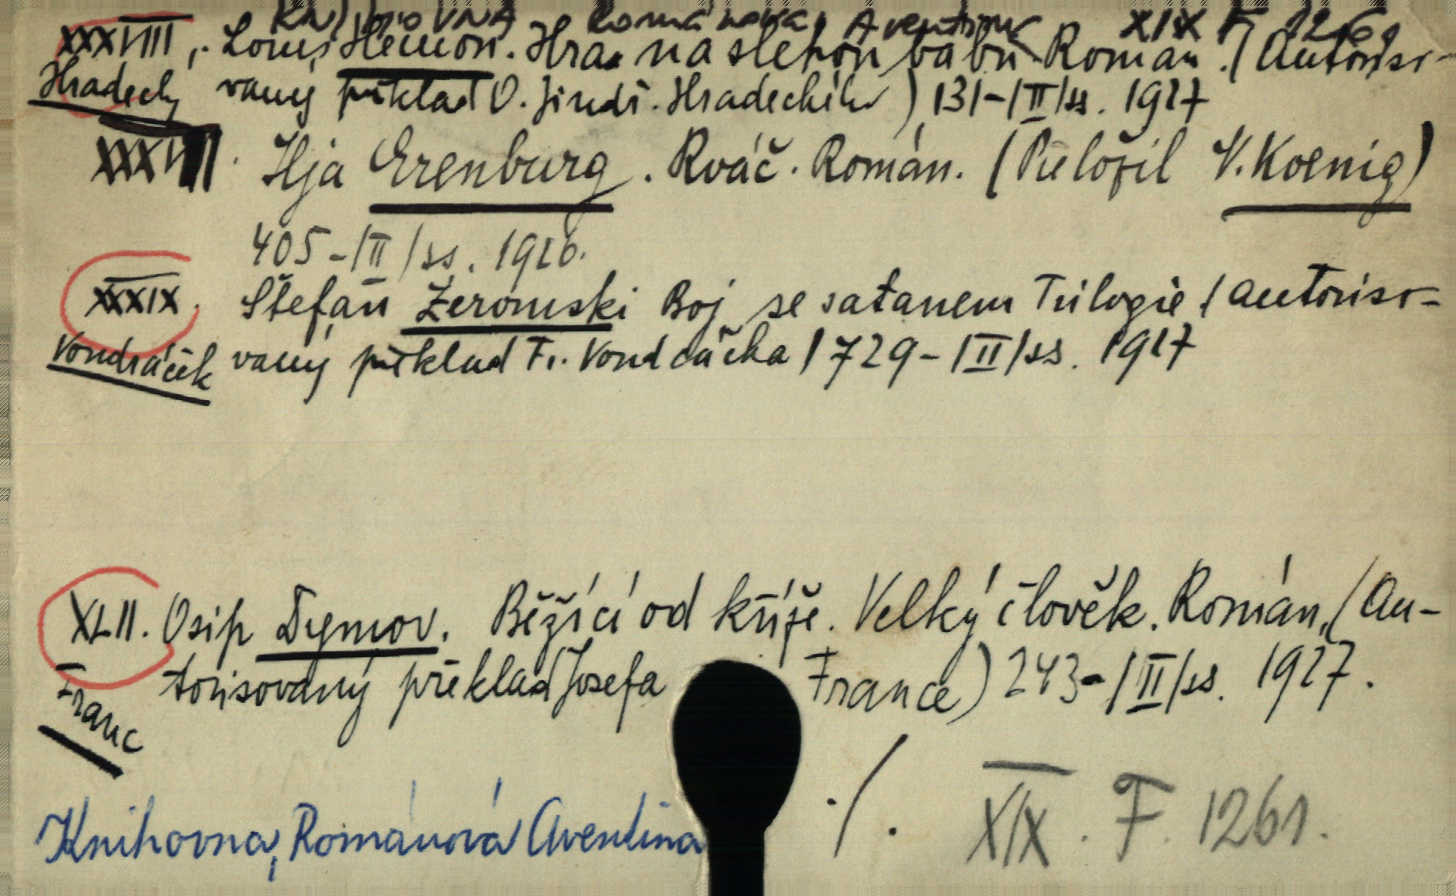 KNIHOVNA Románová Aventina XIX F 1261
XXXVIII. Louis Hémon. Hra na slepou bábu Román. (Autoriso-
Hradecký vaný překlad O. Jindř. Hradeckého) 131-/II/ss. 1927
XXXVII. Ilja Erenburg. Rváč. Román. (Přeložil V. Koenig)
405-/II/ss. 1926.
XXXIX. Štefan Żeromski Boj se satanem Trilogie / autoriso-
Vondráček vaný překlad Fr. Vondráčka / 729-/II/ss. 1927
XLII. Osip Dymov. Běžící od kříže. Velký člověk. Román. (Au-
torisovaný překlad Josefa France) 243-/II/ss. 1927.
Franc
Knihovna, Románová Aventina ./. XIX. F. 1261.